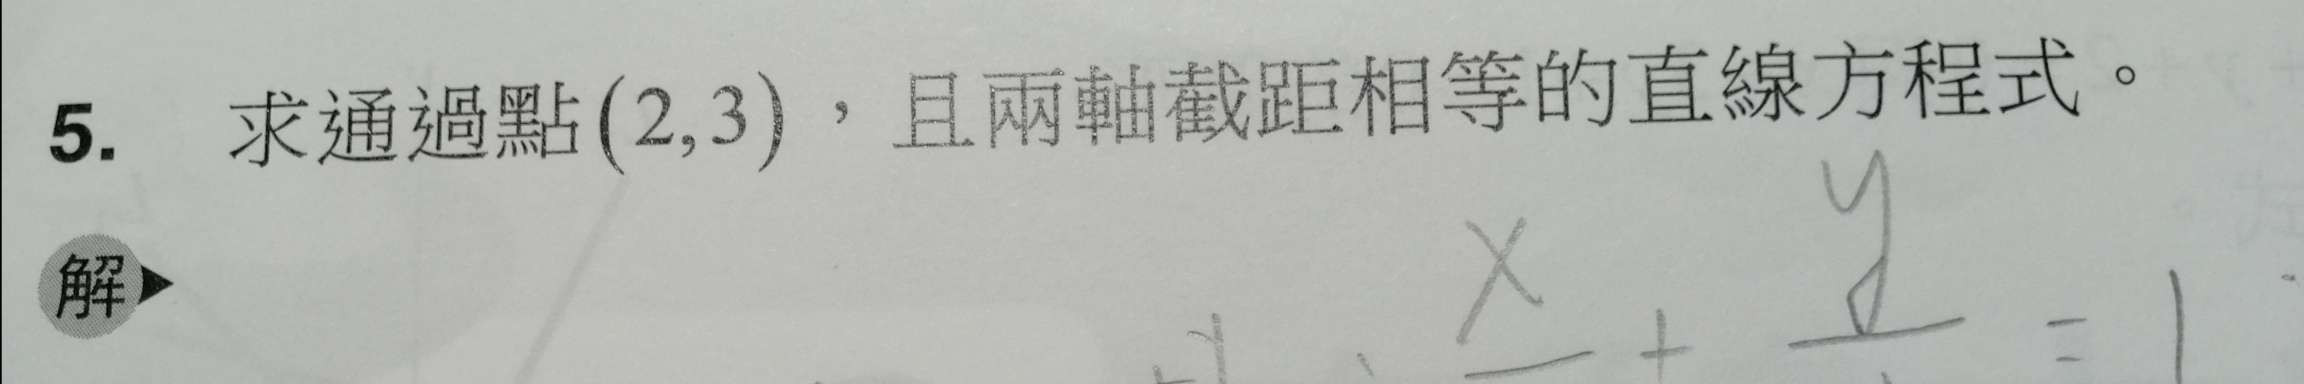 5. 求通過點(2,3)，且兩軸截距相等的直線方程式。
解▶
x + y = 1